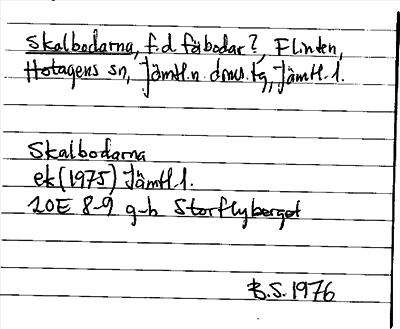 Skalbodarna, f.d fäbodar?, Flinten,
Hotagens sn, Jämtl.n. doms.tg, Jämtl. l.
Skalbodarna
ek (1975) Jämtl. l.
20E 8-9 g-h Storflyberget
B.S. 1976